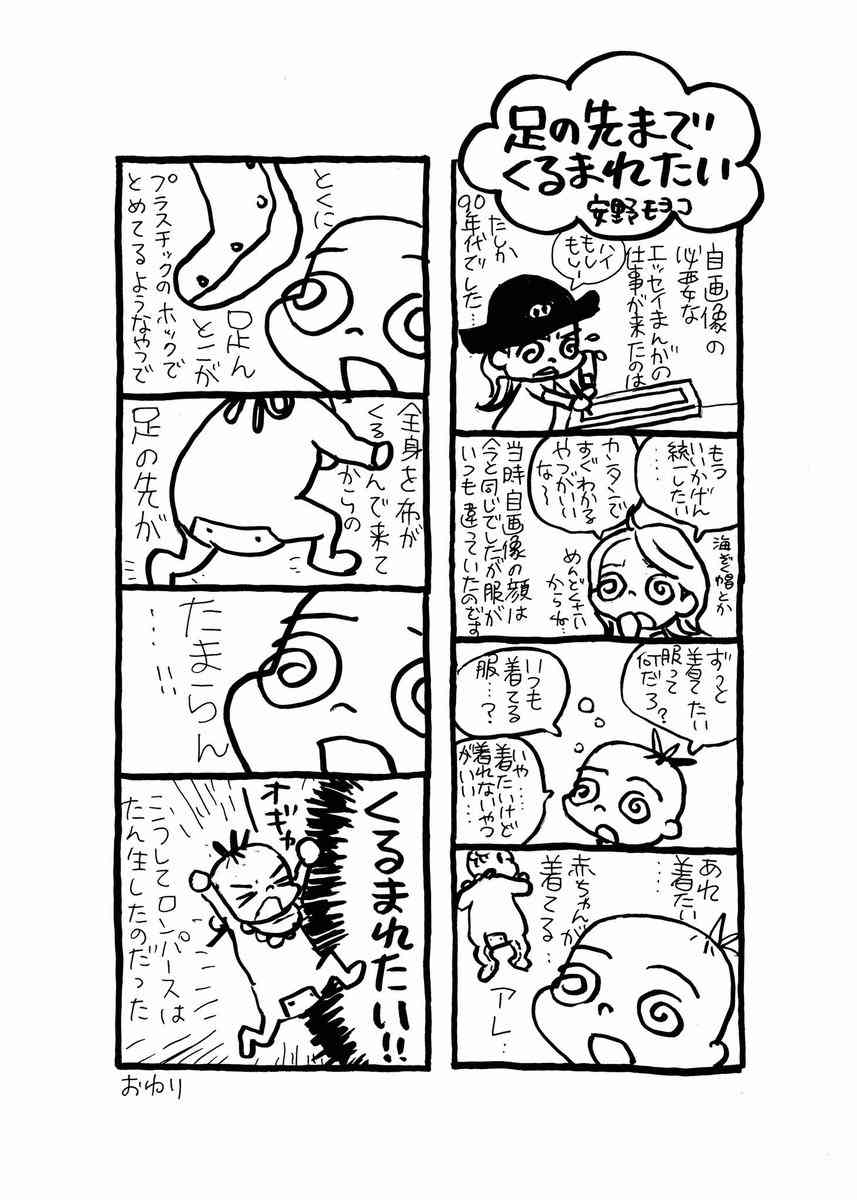 足の先まで
くるまれたい
安野モヨコ
自画像の
必要な
エッセイまんがの
仕事が来たのは
ハイ
もし
もしー
たしか
90年代でした…
もう
いいかげん
統一したい
……
カンタンで
すぐわかる
やつがいい
な〜
海ぞく帽とか
めんどくさい
からね…
当時自画像の顔は
今と同じでしたが服が
いつも違っていたのです
ずっと
着てたい
服って
何だろ?
いつも
着てる
服…?
いや……
着たいけど
着れないやつ
がいい…
あれ
着たい
……
赤ちゃんが
着てる…
アレ…
とくに
足んとこが
プラスチックのホックで
とめてるようなやつで
全身を布が
くるんで来て
からの
足の先が
たまらん
…!!
くるまれたい!!
オギャー
こうしてロンパースは
たん生したのだった
おわり